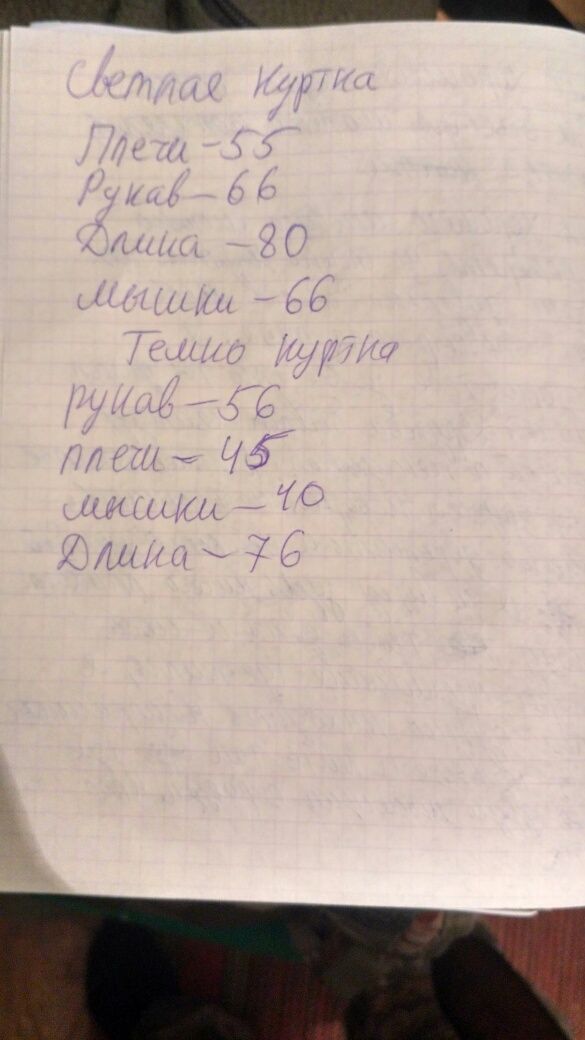 Светлая куртка
Плечи - 55
Рукав - 66
Длина - 80
мышки - 66
Темно куртка
рукав - 56
плечи - 45
мышки - 40
Длина - 76